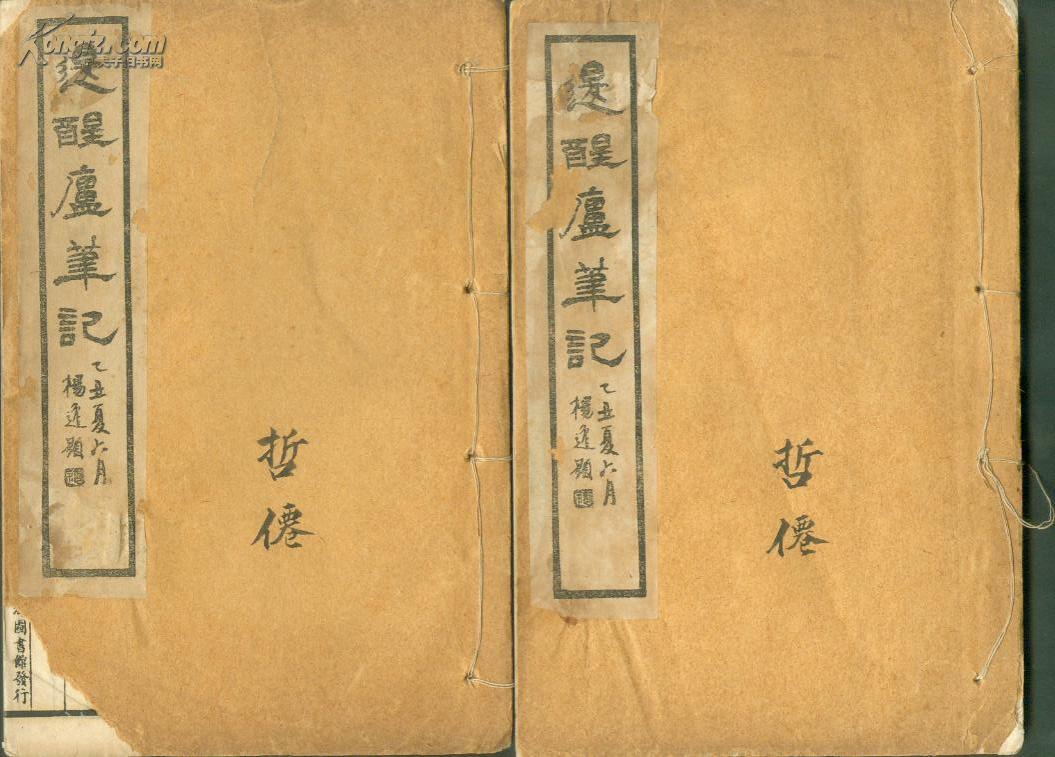 Kongfz.com
夫子旧书网
醒廬筆記
乙丑夏六月
楊逸題
哲僊
圖書館發行
醒廬筆記
乙丑夏六月
楊逸題
哲僊